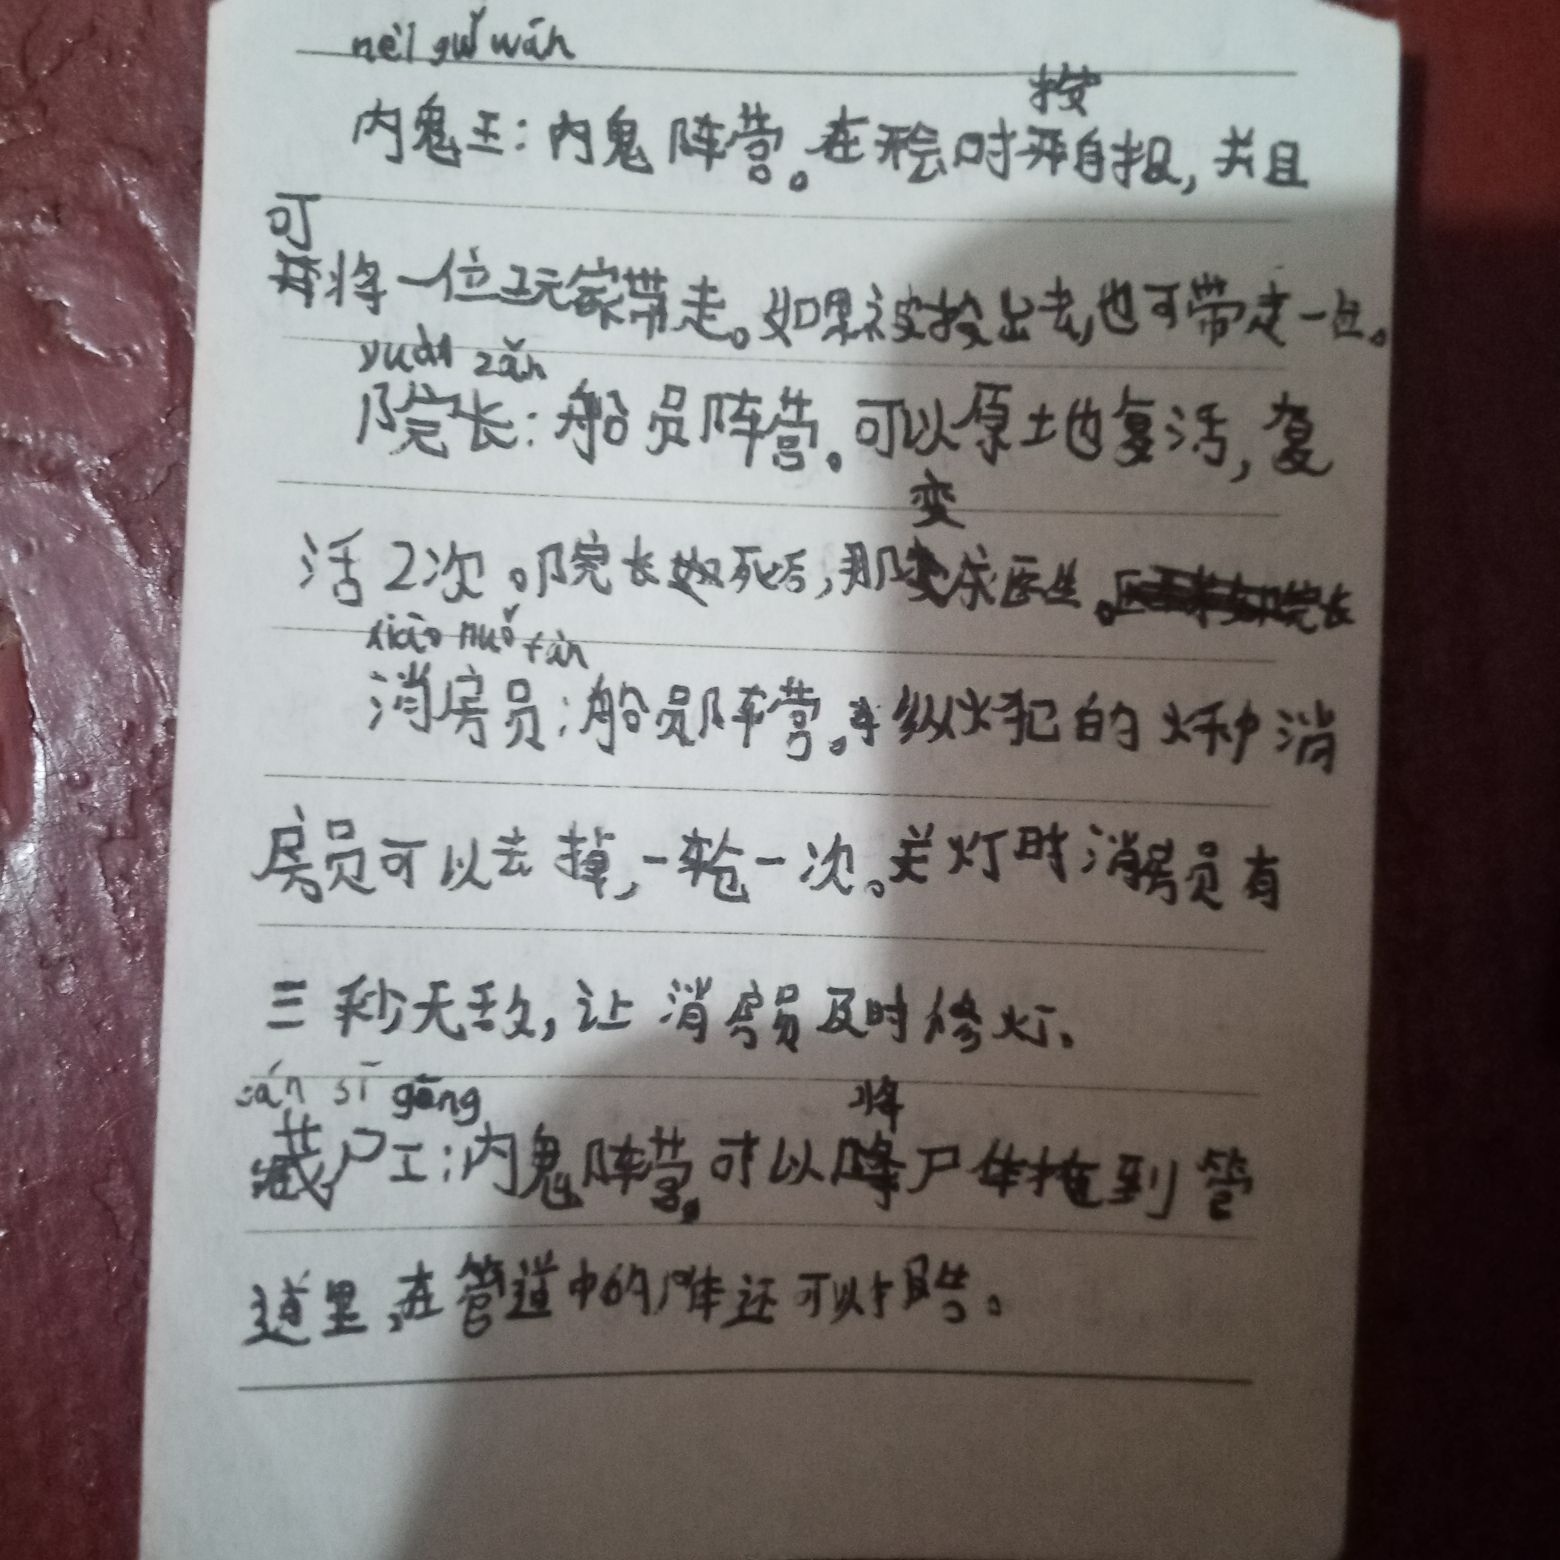 nèi guǐ wán
内鬼王：内鬼阵营。在开会时按自报，并且
可将一位玩家带走。如果被投出去，也可带走一位。
yuàn zǎn
院长：船员阵营。可以原土也复活，复
活2次。院长如死后，那变成医生。
xiāo huǒ yàn
消房员：船员阵营。纵火犯的火种消
房员可以去掉，一轮一次。关灯时消房员有
三秒无敌，让消房员及时修灯。
cán sī gōng
藏尸工：内鬼阵营。可以将尸体掩到管
道里，在管道中的尸体还可以报告。